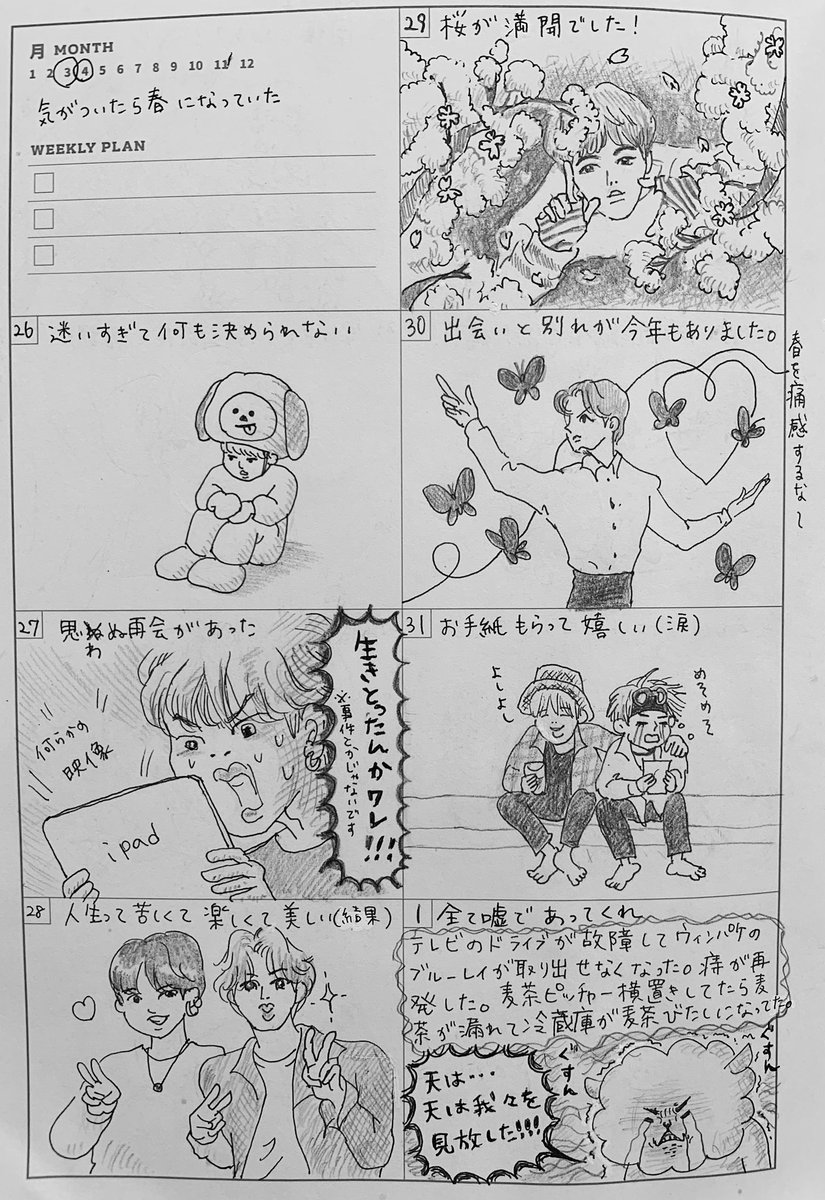 月 MONTH
1 2 3 4 5 6 7 8 9 10 11 12
気がついたら春になっていた
WEEKLY PLAN
26 迷いすぎて何も決められない
27 思ぬぬ再会があった
わ
何らかの
映像
ipad
生きとったんかワレ!!!
※事件とかじゃないです
28 人生って苦しくて楽しくて美しい(結果)
29 桜が満開でした!
30 出会いと別れが今年もありました。
春を痛感するなー
31 お手紙もらって嬉しい(涙)
よしよし
めそめそ
1 全て嘘であってくれ
テレビのドライブが故障してウィンパケの
ブルーレイが取り出せなくなった。痔が再
発した。麦茶ピッチャー横置きしてたら麦
茶が漏れて冷蔵庫が麦茶びたしになってた。
天は…
天は我々を
見放した!!!
ぐすん
ぐすん